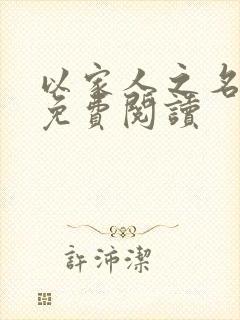 以家人之名
免費閱讀
許沛潔